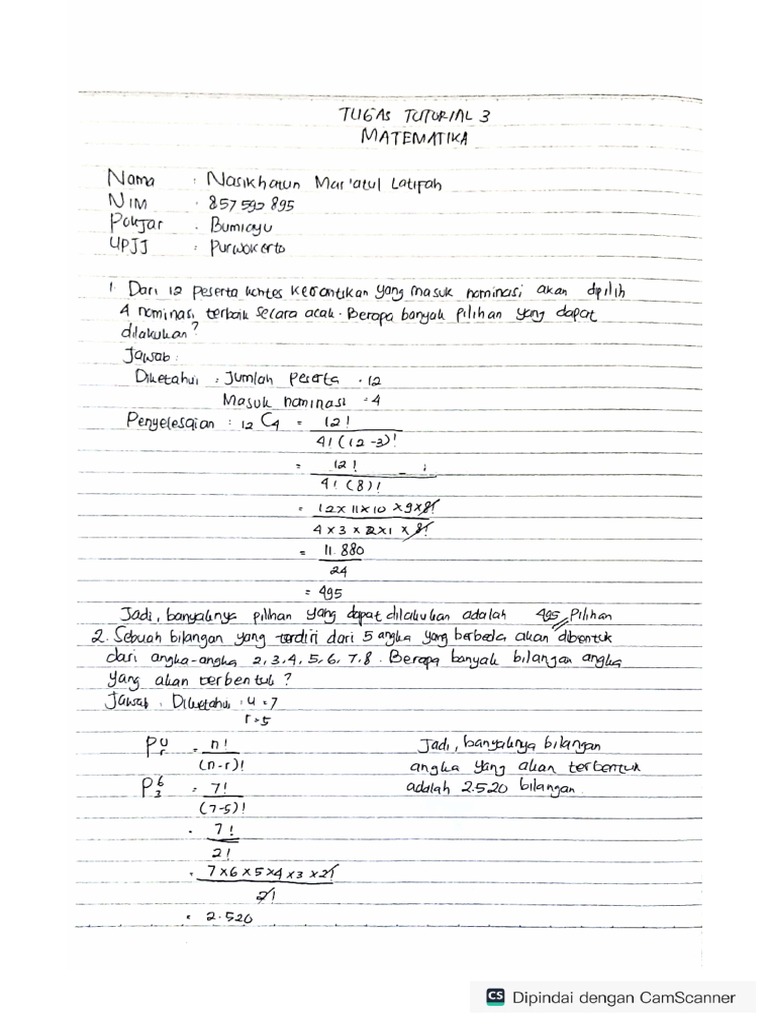 TUGAS TUTORIAL 3
MATEMATIKA
Nama : Nasikhatun Mar'atul Latifah
NIM : 857592895
Pokjar : Bumiayu
UPJJ : Purwokerto
1. Dari 12 peserta kontes kecantikan yang masuk nominasi akan dipilih
4 nominasi terbaik secara acak. Berapa banyak pilihan yang dapat
dilakukan?
Jawab :
Diketahui : Jumlah peserta = 12
Masuk nominasi = 4
Penyelesaian : 12 C4 = 12!
4! (12-3)!
= 12!
4! (8)!
= 12 x 11 x 10 x 9 x 8!
4 x 3 x 2 x 1 x 8!
= 11.880
24
= 495
Jadi, banyaknya pilihan yang dapat dilakukan adalah 495 Pilihan
2. Sebuah bilangan yang terdiri dari 5 angka yang berbeda akan dibentuk
dari angka-angka 2,3,4,5,6,7,8. Berapa banyak bilangan angka
yang akan terbentuk?
Jawab : Diketahui : n = 7
r = 5
P n r = n!
(n-r)!
P 6 3 = 7!
(7-5)!
= 7!
2!
= 7 x 6 x 5 x 4 x 3 x 2!
2!
= 2.520
Jadi, banyaknya bilangan
angka yang akan terbentuk
adalah 2.520 bilangan.
CS Dipindai dengan CamScanner